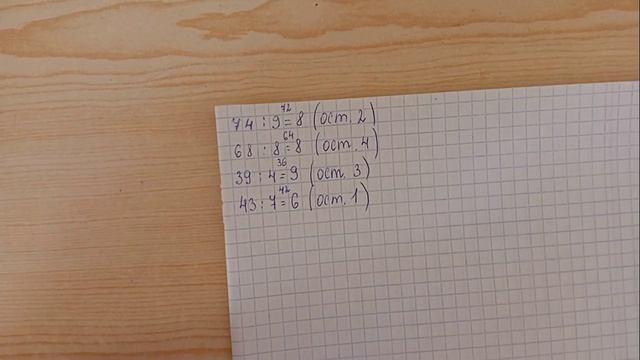 74 : 9 = 8 (ост. 2)
72
68 : 8 = 8 (ост. 4)
64
39 : 4 = 9 (ост. 3)
36
43 : 7 = 6 (ост. 1)
42